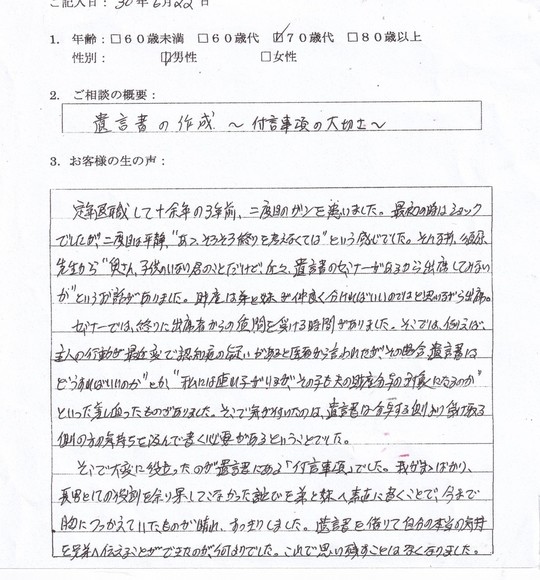 ご記入日：30年6月22日
1. 年齢：□60歳未満 □60歳代 ☑70歳代 □80歳以上
性別： ☑男性 □女性
2. ご相談の概要：
遺言書の作成 ～付言事項の大切さ～
3. お客様の生の声：
定年退職して十余年の3年前、二度目のガンを患いました。最初の時はショック
でしたが、二度目は平静、"あゝ、そろそろ終りを考えなくては"という感じでした。それな折、
先生から"奥さん、子供のいない君のことだけど、近々、遺言書のセミナーがあるから出席してみない
か"というお話がありました。財産は弟と妹が仲良く分ければいいのではと思いながら出席。
セミナーでは、終りに出席者からの質問を受ける時間がありました。そこでは、例えば、
主人の行動が最近変で認知症の疑いがあると医者から言われたが、その場合遺言書は
どうすればいいのか"とか、"私には連れ子がいるが、その子も夫の財産分与の対象になるのか"
といった差し迫ったものがありました。そこで気が付いたのは、遺言書は分与する側より受け取る
側の方の気持ちを汲んで書く必要があるということでした。
そこで大変に役立ったのが遺言書にある「付言事項」でした。我がまゝばかり、
長男としての役割を余り果していなかった詫びを弟と妹へ素直に書くことで、今まで
胸につかえていたものが晴れ、すっきりしました。遺言書を借りて自分の本当の気持
を兄弟へ伝えることができたのが、何よりでした。これで思い残すことはなくなりました。